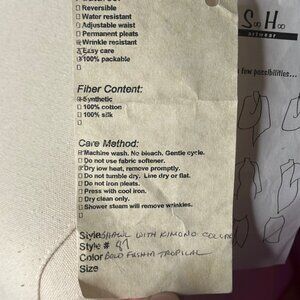 □ Reversible
□ Water resistant
□ Adjustable waist
□ Permanent pleats
Wrinkle resistant
Easy care
□ 100% packable
Fiber Content:
Synthetic
□ 100% cotton
□ 100% silk
Care Method:
Machine wash. No bleach. Gentle cycle.
□ Do not use fabric softener.
Dry low heat, remove promptly.
□ Do not tumble dry. Line dry or flat.
□ Do not iron pleats.
□ Press with cool iron.
□ Dry clean only.
□ Shower steam will remove wrinkles.
Style SHAWL WITH KIMONO
Style # 87
Color BOLD FUSHIA TROPICAL
Size
S Ho
artwear
few possibilities...